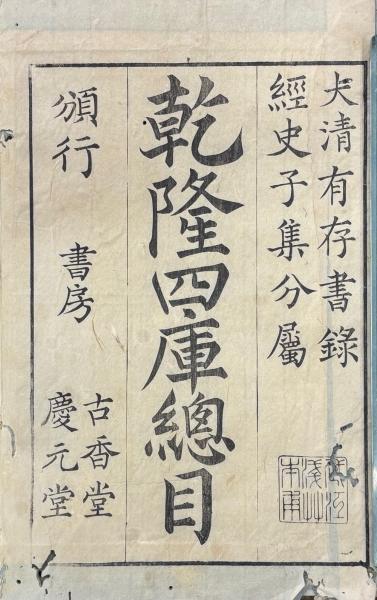 大清有存書錄
經史子集分屬
乾隆四庫總目
頒行
書房
古香堂
慶元堂
淺艸
本甫